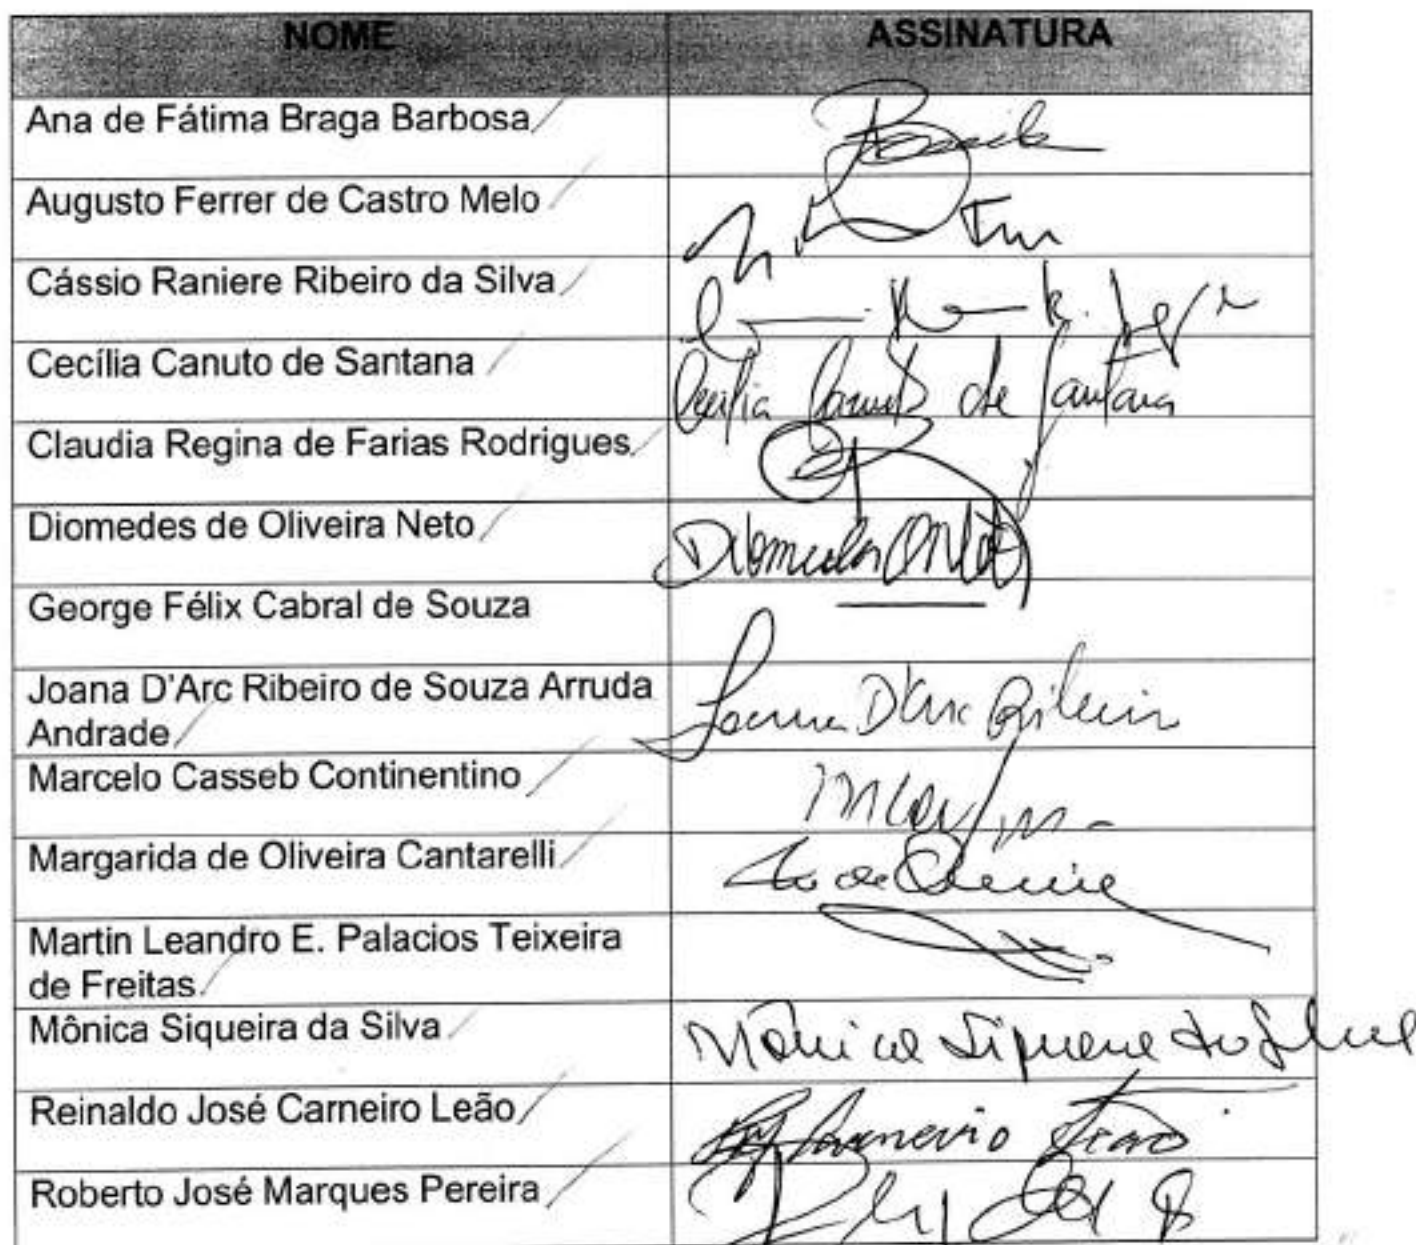 NOME ASSINATURA
Ana de Fátima Braga Barbosa
Augusto Ferrer de Castro Melo
Cássio Raniere Ribeiro da Silva
Cecília Canuto de Santana Cecília Canuto de Santana
Claudia Regina de Farias Rodrigues
Diomedes de Oliveira Neto Diomedes
George Félix Cabral de Souza
Joana D'Arc Ribeiro de Souza Arruda
Andrade Joana D'Arc Ribeiro
Marcelo Casseb Continentino
Margarida de Oliveira Cantarelli
Martin Leandro E. Palacios Teixeira
de Freitas
Mônica Siqueira da Silva Mônica Siqueira da Silva
Reinaldo José Carneiro Leão Carneiro Leão
Roberto José Marques Pereira